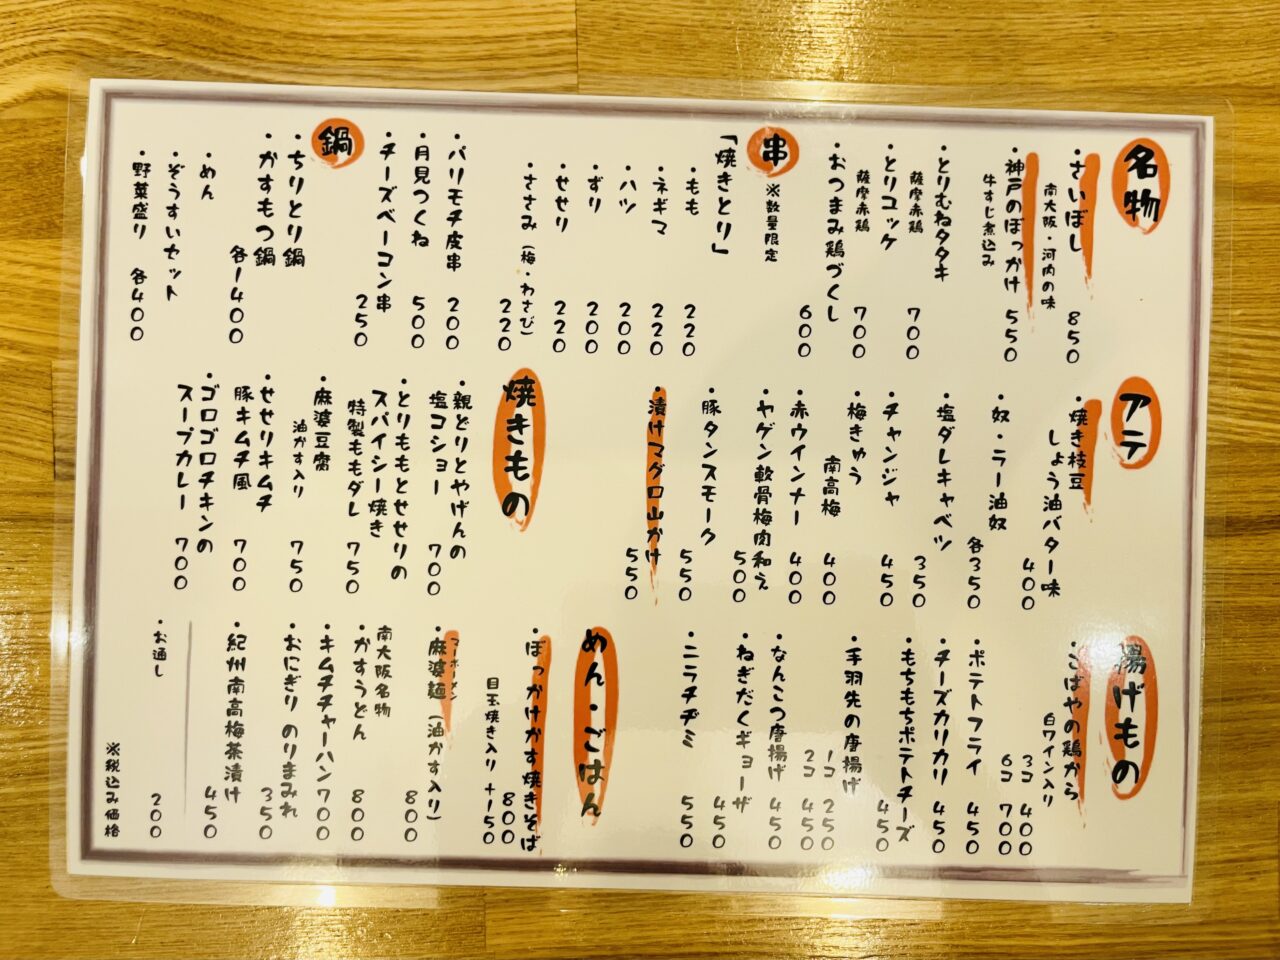 名物
・さいぼし
南大阪・河内の味
850
・神戸のぼっかけ
牛すじ煮込み
550
・とりむねタタキ
薩摩赤鶏
700
・とりユッケ
薩摩赤鶏
700
・おつまみ鶏づくし
600
串
※数量限定
「焼きとり」
・もも
220
・ネギマ
220
・ハツ
200
・ずり
200
・せせり
220
・ささみ(梅・わさび)
220
・パリモチ皮串
200
・月見つくね
500
・チーズベーコン串
250
鍋
・ちりとり鍋
・かすもつ鍋
各1400
・めん
・ぞうすいセット
・野菜盛り
各400
アテ
・焼き枝豆
しょう油バター味
400
・奴・ラー油奴
各350
・塩ダレキャベツ
350
・チャンジャ
450
・梅きゅう
南高梅
400
・赤ウインナー
400
・ヤゲン軟骨梅肉和え
500
・豚タンスモーク
550
・漬けマグロ山かけ
550
焼きもの
・親どりとやげんの
塩コショー
700
・とりももとせせりの
スパイシー焼き
特製ももダレ
750
・麻婆豆腐
油かす入り
750
・せせりキムチ
豚キムチ風
700
・ゴロゴロチキンの
スープカレー
700
揚げもの
・こばやの鶏から
白ワイン入り
3コ 400
6コ 700
・ポテトフライ
450
・チーズカリカリ
450
・もちもちポテトチーズ
450
・手羽先の唐揚げ
1コ 250
2コ 450
・なんこつ唐揚げ
450
・ねぎだくギョーザ
450
・ニラチヂミ
550
めん・ごはん
・ぼっかけかす焼きそば
800
目玉焼き入り +150
・麻婆麺(油かす入り)
マーボーメン
800
南大阪名物
・かすうどん
800
・キムチチャーハン
700
・おにぎり のりまみれ
350
・紀州南高梅茶漬け
450
・お通し
200
※税込み価格